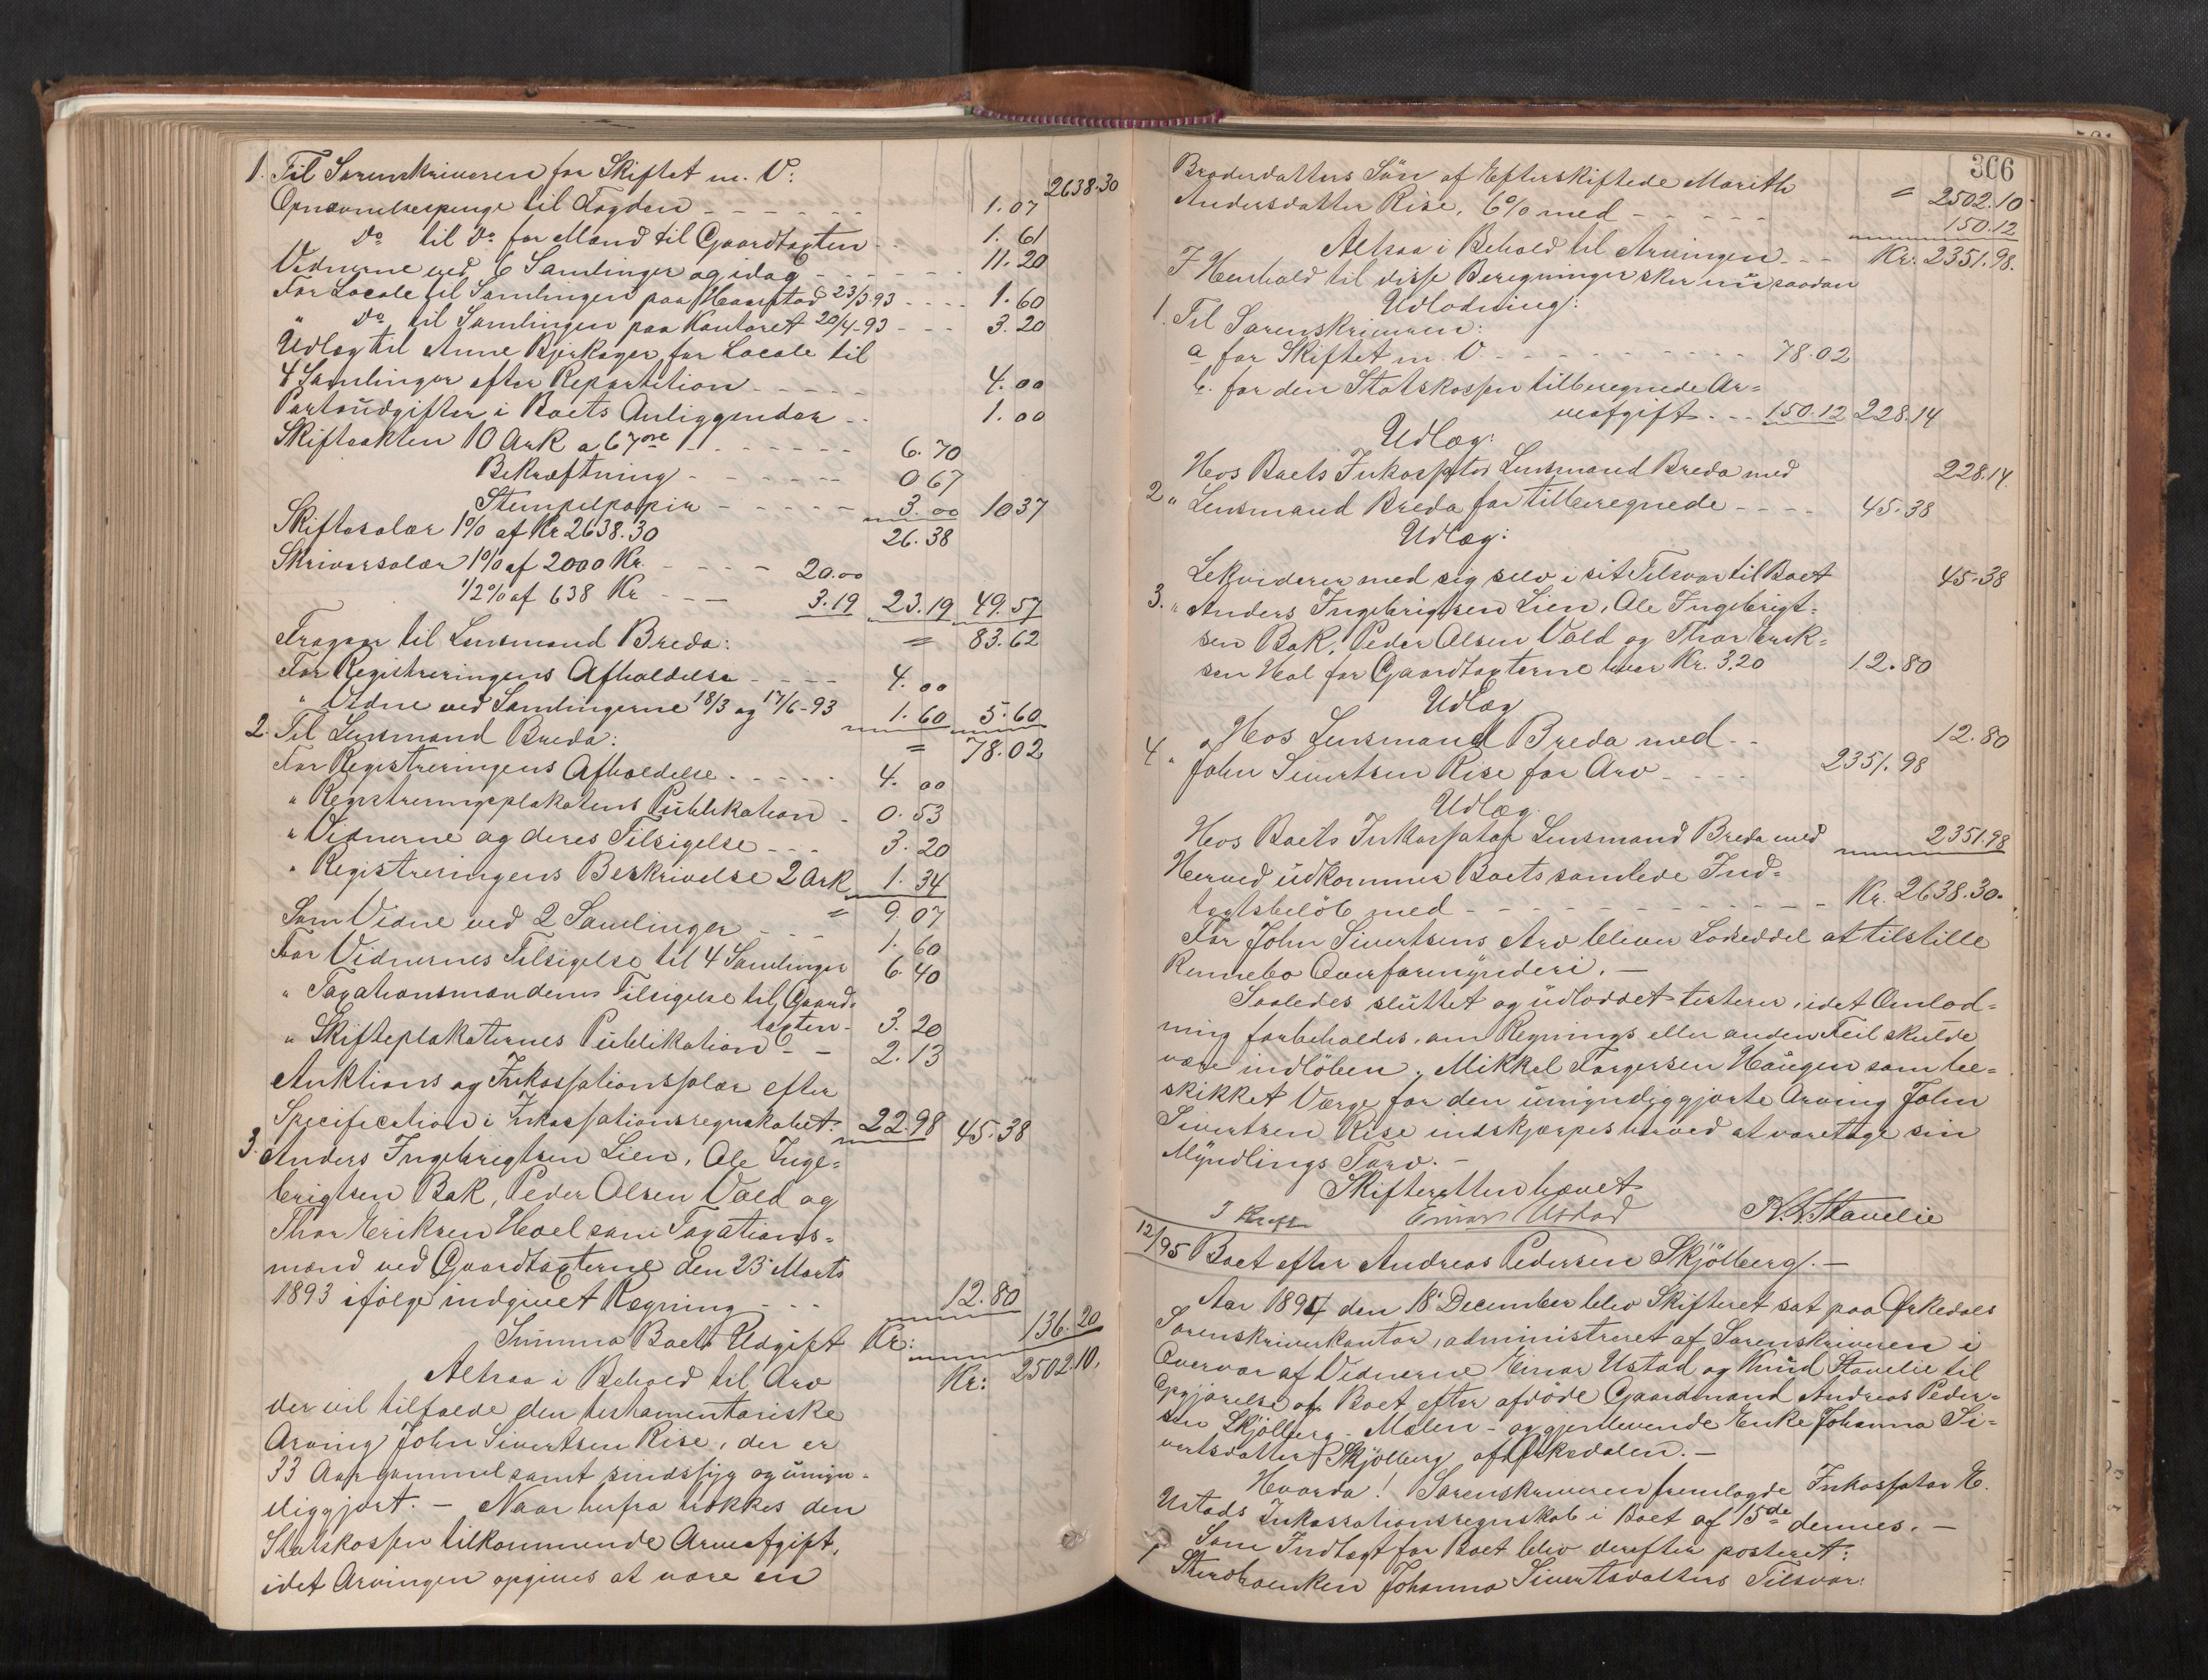 1. Til Sorenskriveren for Skiftet m. V: 2638.30
Opnævnelsespenge til Fogden - - - - - - 1.07
Do til Do for Mænd til Gaardtaxten - - 1.61
Vidnerne ved 6 Samlinger og idag - - - - - - 11.20
For Locale til Samlingen paa Haarstad 23/3 93 - - - - 1.60
" Do til Samlingen paa Kontoret 20/4-93 - - - 3.20
Udlæg til Anne Bjerkager for Locale til
4 Samlinger efter Repartition - - - - 4.00
Portoudgifter i Boets Anliggender - - 1.00
Skifteakten 10 Ark a 67 øre - - - - - - - 6.70
Bekræftning - - - - - - 0 67
Stempelpapir - - - - - 3.00 10 37
Skiftesalær 1% af Kr 2638.30 26.38
Skriversalær 1% af 2000 Kr. - - - - 20.00
1/2% af 638 Kr - - - 3.19 23.19 49.57
Fragaar til Lensmand Breda: = 83.62
For Registreringens Afholdelse - - - - 4.00
" Vidne ved Samlingerne 18/3 og 17/6-93 1.60 5.60
2. Til Lensmand Breda: = 78.02
For Registreringens Afholdelse - - - - - 4.00
" Registreringsplakatens Publikation - 0.53
" Vidnerne og deres Tilsigelse - - - 3.20
" Registreringens Beskrivelse 2 Ark 1.34
= 9.07
Som Vidne ved 2 Samlinger - - - 1.60
For Vidnernes Tilsigelse til 4 Samlinger 6.40
" Taxationsmændenes Tilsigelse til Gaard-
taxten - 3.20
" Skifteplakaternes Publikation - - 2.13
Auktions og Inkassationssalær efter
Specification i Inkassationsregnskabet: 22.98 45.38
3. Anders Ingebrigtsen Lien, Ole Inge-
brigtsen Bak, Peder Olsen Vold og
Thor Eriksen Hoel som Taxations-
mænd ved Gaardtaxterne den 23 Marts
1893 ifølge indgivet Regning - - - 12.80
Summa Boets Udgift Kr: 136.20
Altsaa i Behold til Arv Kr: 2502.10.
der vil tilfalde den testamentariske
Arving John Sivertsen Rise, der er
33 Aar gammel samt sindssyg og umyn-
diggjort. - Naar herfra trækkes den
Statskassen tilkommende Arveafgift,
idet Arvingen opgives at være en
366
Broderdatters Søn af Efterskiftede Marith
Andersdatter Rise, 6% med - - - - - = 2502.10
150.12
Altsaa i Behold til Arvingen - - - Kr. 2351.98.
I Henhold til disse Beregninger sker nu saadan
Udlodning:
1. Til Sorenskriveren:
a for Skiftet m. V - - - - - - - - - - 78.02
b. for den Statskassen tilberegnede Ar-
veafgift - - - 150.12 228.14
Udlæg:
Hos Boets Inkassator Lensmand Breda med 228.14.
2 " Lensmand Breda for tilberegnede - - - - 45.38
Udlæg:
Lekviderer med sig selv i sit Tilsvar til Boet 45.38
3. " Anders Ingebrigtsen Lien, Ole Ingebrigt-
sen Bak, Peder Olsen Vold og Thor Erik-
sen Hol for Gaardtaxterne hver Kr. 3.20 12.80
Udlæg
Hos Lensmand Breda med - - 12.80
4 " John Sivertsen Rise for Arv - - - - 2351.98
Udlæg:
Hos Boets Inkassator Lensmand Breda med 2351.98
Herved udkommer Boets samlede Ind-
tægtsbeløb med - - - - - - - - - - - - Kr. 2638.30.
For John Sivertsens Arv bliver Lodseddel at tilstille
Rennebo Overformynderi. -
Saaledes sluttet og udloddet testerer, idet Omlod-
ning forbeholdes, om Regnings eller anden Feil skulde
være indløben. Mikkel Torgersen Haugen som be-
skikket Værge for den umyndiggjorte Arving John
Sivertsen Rise indskjærpes herved at varetage sin
Myndlings Tarv. -
Skifteretten hævet
Einar Ustad K. L. Stavelie
12/95 Boet efter Andreas Pedersen Skjølberg. -
Aar 1894 den 18 December blev Skifteret sat paa Ørkedals
Sorenskriverkontor, administreret af Sorenskriveren i
Overvær af Vidnerne Einar Ustad og Knud Stavelie til
Opgjørelse af Boet efter afdøde Gaardmand Andreas Peder-
sen Skjølberg - Malen - og gjenlevende Enke Johanna Si-
vertsdatter Skjølberg af Ørkedalen. -
Hvorda! Sorenskriveren fremlagde Inkassator E.
Ustads Inkassationsregnskab i Boet af 15de dennes. -
Som Indtægt for Boet blev derefter posteret:
1 Stervboenken Johanna Sivertsdatters Tilsvar: